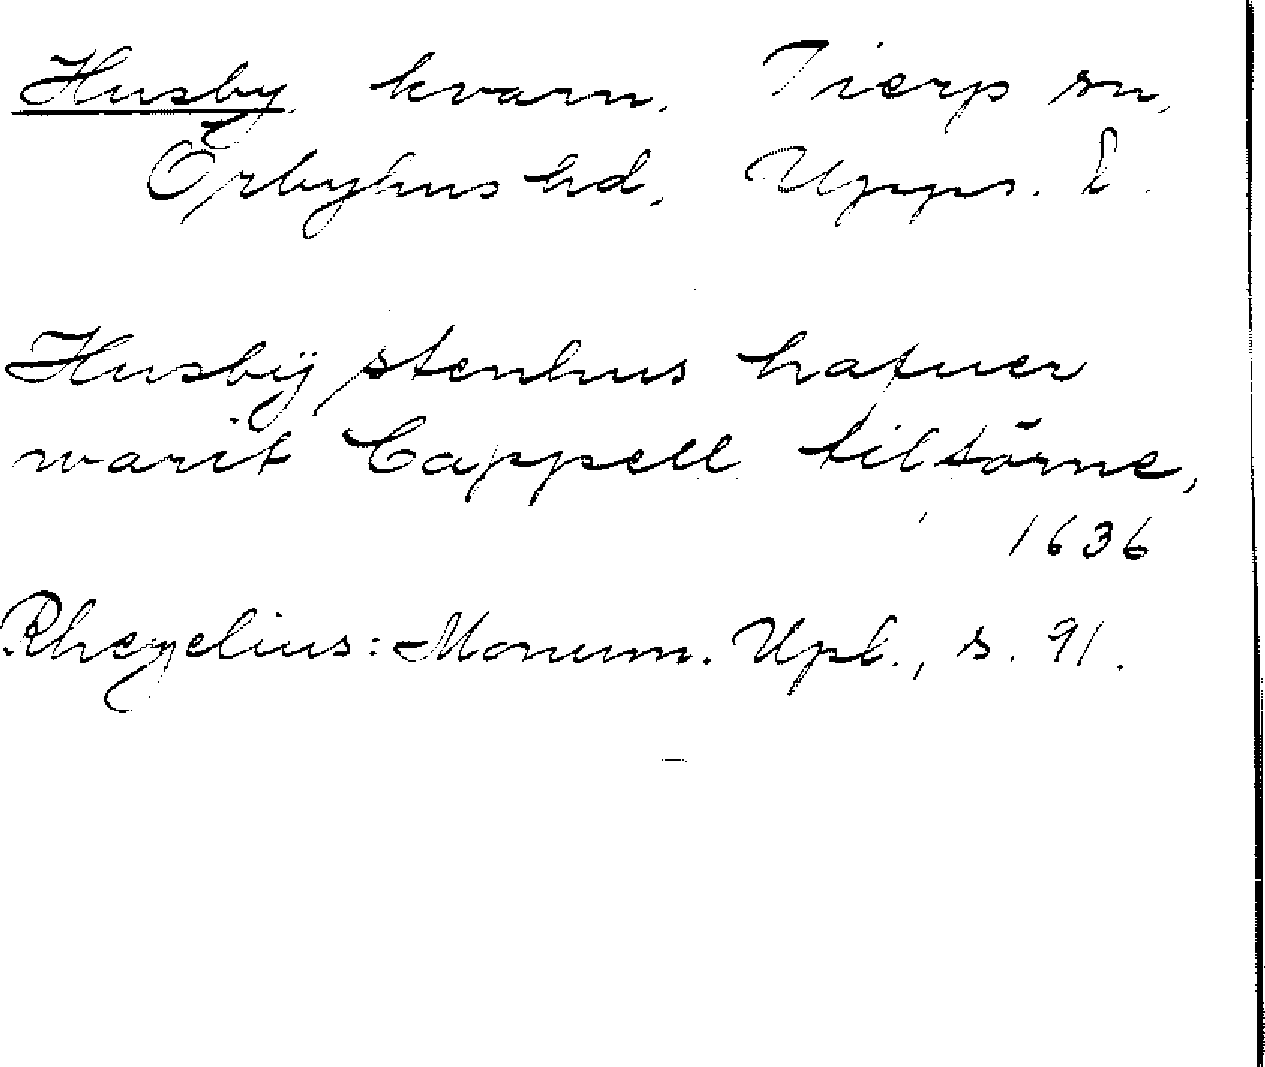 Husby kvarn. Tierp sn,
Örbyhus hd, Upps. l.
Husbÿ stenhus hafuer
warit Cappell tilförne,
1636
Rhezelius: Monum. Upl., s. 91.